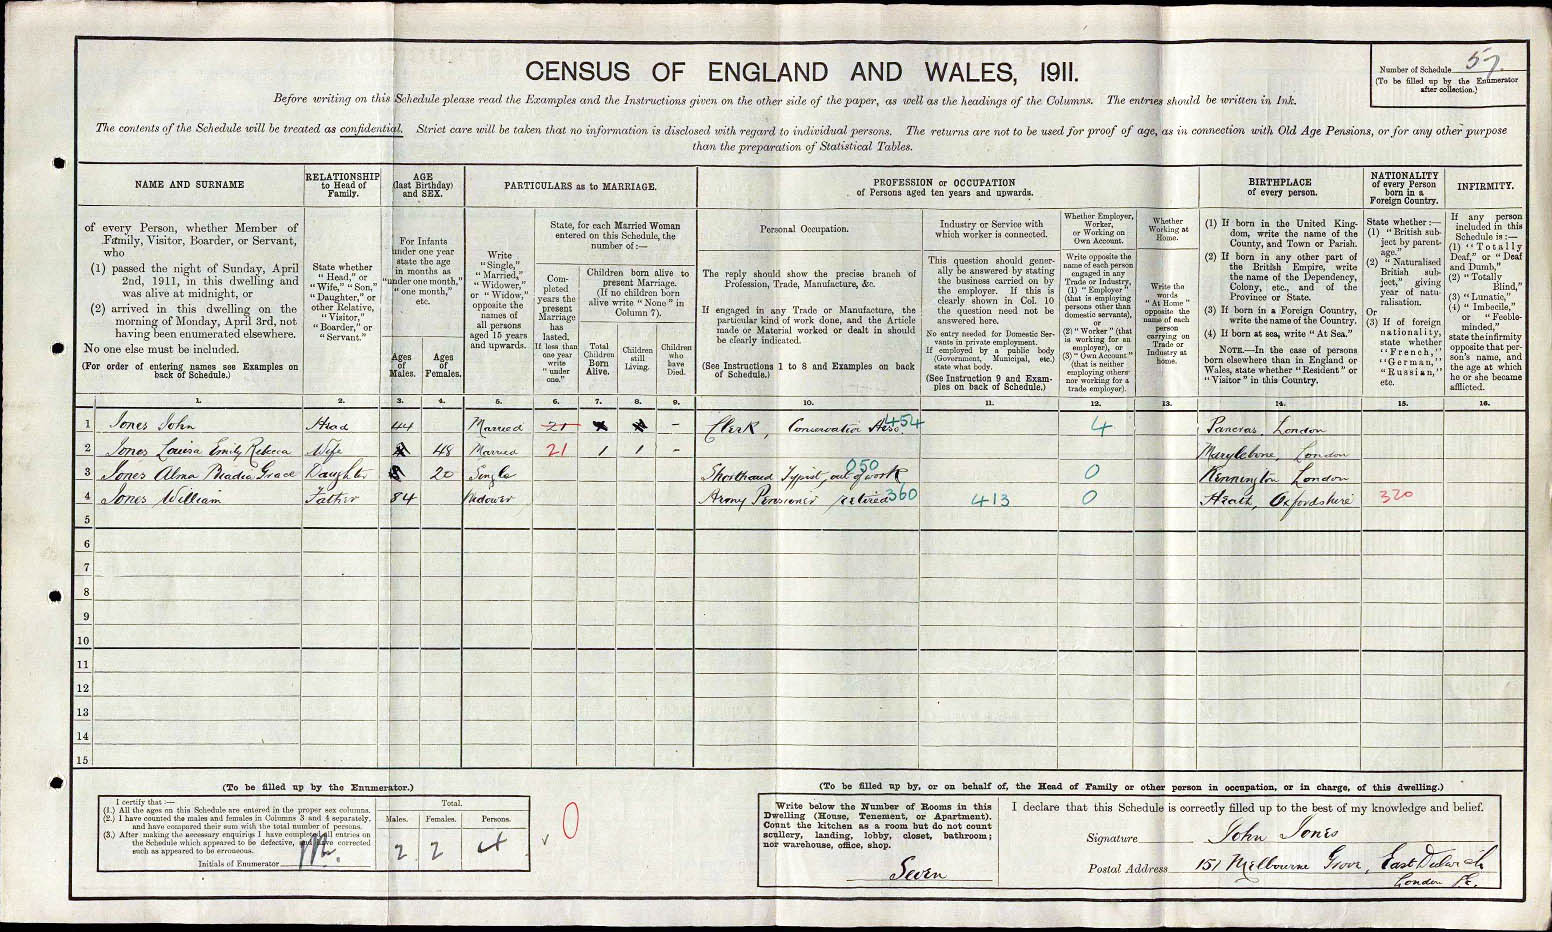 CENSUS OF ENGLAND AND WALES, 1911.
Number of Schedule 57.
(To be filled up by the Enumerator
after collection.)
Before writing on this Schedule please read the Examples and the Instructions given on the other side of the paper, as well as the headings of the Columns. The entries should be written in Ink.
The contents of the Schedule will be treated as confidential. Strict care will be taken that no information is disclosed with regard to individual persons. The returns are not to be used for proof of age, as in connection with Old Age Pensions, or for any other purpose
than the preparation of Statistical Tables.
NAME AND SURNAME
of every Person, whether Member of
Family, Visitor, Boarder, or Servant,
who
(1) passed the night of Sunday, April
2nd, 1911, in this dwelling and
was alive at midnight, or
(2) arrived in this dwelling on the
morning of Monday, April 3rd, not
having been enumerated elsewhere.
No one else must be included.
(For order of entering names see Examples on
back of Schedule.)
RELATIONSHIP
to Head of
Family.
State whether
"Head," or
"Wife," "Son,"
"Daughter," or
other Relative,
"Visitor,"
"Boarder," or
"Servant."
AGE
(last Birthday)
and SEX.
For Infants
under one year
state the age
in months as
"under one month,"
"one month,"
etc.
Ages
of
Males.
Ages
of
Females.
PARTICULARS as to MARRIAGE.
Write
"Single,"
"Married,"
"Widower,"
or "Widow,"
opposite the
names of
all persons
aged 15 years
and upwards.
State, for each Married Woman
entered on this Schedule, the
number of:—
Completed
years the
present
Marriage
has
lasted.
If less than
one year
write
"under
one."
Children born alive to
present Marriage.
(If no children born
alive write "None" in
Column 7).
Total
Children
Born
Alive.
Children
still
Living.
Children
who
have
Died.
PROFESSION or OCCUPATION
of Persons aged ten years and upwards.
Personal Occupation.
The reply should show the precise branch of
Profession, Trade, Manufacture, &c.
If engaged in any Trade or Manufacture, the
particular kind of work done, and the Article
made or Material worked or dealt in should
be clearly indicated.
(See Instructions 1 to 8 and Examples on back
of Schedule.)
Industry or Service with
which worker is connected.
This question should generally
be answered by stating
the business carried on by
the employer. If this is
clearly shown in Col. 10
the question need not be
answered here.
No entry needed for Domestic Servants
in private employment.
If employed by a public body
(Government, Municipal, etc.)
state what body.
(See Instruction 9 and Examples
on back of Schedule.)
Whether Employer,
Worker,
or Working on
Own Account.
Write opposite the
name of each person
engaged in any
Trade or Industry,
(1) "Employer"
(that is employing
persons other than
domestic servants),
or
(2) "Worker" (that
is working for an
employer), or
(3) "Own Account"
(that is neither
employing others
nor working for a
trade employer).
Whether
Working at
Home.
Write the
words
"At Home"
opposite the
name of each
person
carrying on
Trade or
Industry at
home.
BIRTHPLACE
of every person.
(1) If born in the United Kingdom,
write the name of the
County, and Town or Parish.
(2) If born in any other part of
the British Empire, write
the name of the Dependency,
Colony, etc., and of the
Province or State.
(3) If born in a Foreign Country,
write the name of the Country.
(4) If born at sea, write "At Sea."
NOTE.—In the case of persons
born elsewhere than in England or
Wales, state whether "Resident" or
"Visitor" in this Country.
NATIONALITY
of every Person
born in a
Foreign Country.
State whether:—
(1) "British subject
by parentage."
(2) "Naturalised
British subject,"
giving
year of naturalisation.
Or
(3) If of foreign
nationality,
state whether
"French,"
"German,"
"Russian,"
etc.
INFIRMITY.
If any person
included in this
Schedule is:—
(1) "Totally
Deaf," or "Deaf
and Dumb,"
(2) "Totally
Blind,"
(3) "Lunatic,"
(4) "Imbecile,"
or "Feeble-minded,"
state the infirmity
opposite that person's
name, and
the age at which
he or she became
afflicted.
1. 2. 3. 4. 5. 6. 7. 8. 9. 10. 11. 12. 13. 14. 15. 16.
1 Jones John Head 44 Married 21 – Clerk, Conservative Asso. 454 4 Pancras London
2 Jones Louisa Emily Rebecca Wife 48 Married 21 1 1 – Marylebone, London
3 Jones Alma Grace Daughter 20 Single Shorthand Typist, out of work 050 0 Kennington London
4 Jones William Father 84 Widower Army Pensioner retired 360 413 0 Heath, Oxfordshire 320
5
6
7
8
9
10
11
12
13
14
15
(To be filled up by the Enumerator.)
I certify that:—
(1.) All the ages on this Schedule are entered in the proper sex columns.
(2.) I have counted the males and females in Columns 3 and 4 separately,
and have compared their sum with the total number of persons.
(3.) After making the necessary enquiries I have completed all entries on
the Schedule which appeared to be defective, and have corrected
such as appeared to be erroneous.
Initials of Enumerator
Total.
Males. Females. Persons.
2 2 4
0
(To be filled up by, or on behalf of, the Head of Family or other person in occupation, or in charge, of this dwelling.)
Write below the Number of Rooms in this
Dwelling (House, Tenement, or Apartment).
Count the kitchen as a room but do not count
scullery, landing, lobby, closet, bathroom;
nor warehouse, office, shop.
Seven
I declare that this Schedule is correctly filled up to the best of my knowledge and belief.
Signature John Jones
Postal Address 151 Melbourne Grove, East Dulwich
London S.E.